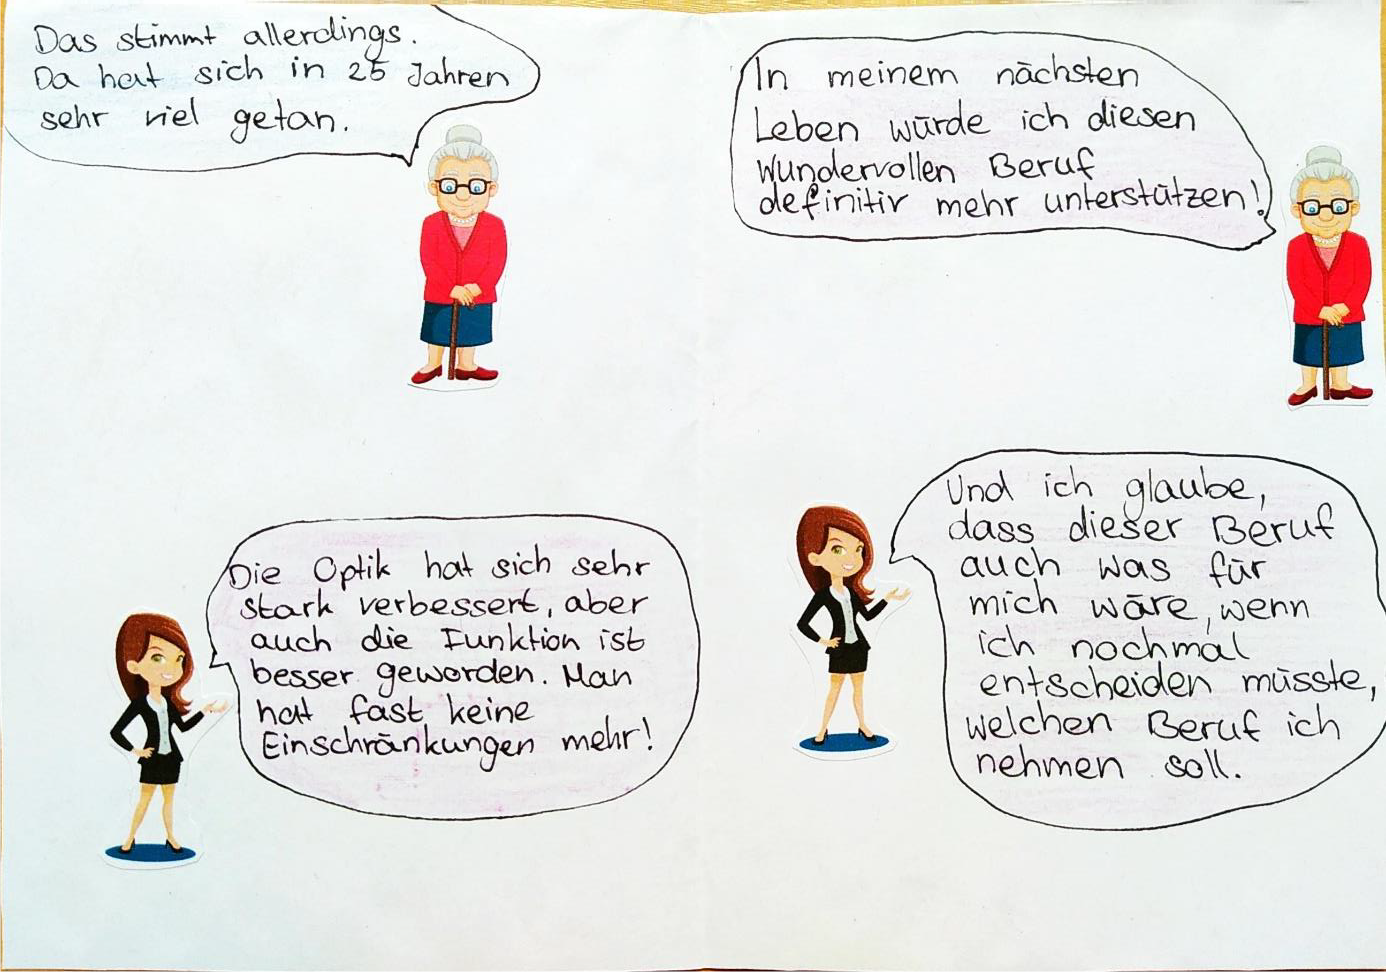 Das stimmt allerdings.
Da hat sich in 25 Jahren
sehr viel getan.
Die Optik hat sich sehr
stark verbessert, aber
auch die Funktion ist
besser geworden. Man
hat fast keine
Einschränkungen mehr!
In meinem nächsten
Leben würde ich diesen
wundervollen Beruf
definitiv mehr unterstützen!
Und ich glaube,
dass dieser Beruf
auch was für
mich wäre, wenn
ich nochmal
entscheiden müsste,
welchen Beruf ich
nehmen soll.